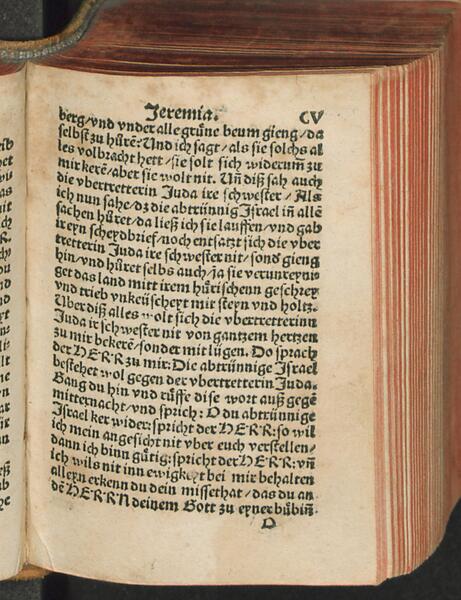 Jeremia. CV
berg/vnd vnder alle grüne beum gieng/da
selbst zu hürẽ? Und ich sagt/als sie solchs al
les volbracht hett/sie solt sich widerumb zu
mir kerẽ/aber sie wolt nit. Uñ diß sah auch
die vbertretterin Juda ire schwester/Als
ich nun sahe/dz die abtrünnig Israel in allẽ
sachen hüret/da ließ ich sie lauffen/vnd gab
ir eyn scheydbrief/noch entsatzt sich die vber
tretterin Juda ire schwester nit/sond gieng
hin/vnd hüret selbs auch/ja sie verunreyni
get das land mitt irem hürischenn geschrey
vnd trieb vnkeüscheyt mit steyn vnd holtz.
Uber diß alles wolt sich die vbertretterinn
Juda ir schwester nit von gantzem hertzen
zu mir bekerẽ/sonder mit lügen. Do sprach
der HERR zu mir: Die abtrünnige Israel
bestehet wol gegen der vbertretterin Juda.
Gang du hin vnd rüffe dise wort auß gegẽ
mitternacht/vnd sprich: O du abtrünnige
Israel ker wider: spricht der HERR: so wil
ich mein angesicht nit vber euch verstellen/
dann ich binn gütig: spricht der HERR: vñ
ich wils nit inn ewigkeyt bei mir behalten
alleyn erkenn du dein missethat/das du an
dẽ HERRN deinem Gott zu eyner bübiñ
D